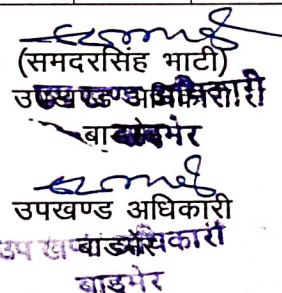 (समदरसिंह भाटी)
उपखण्ड अधिकारी
बाडमेर
उपखण्ड अधिकारी
बाडमेर
उप खण्ड अधिकारी
बाड़मेर